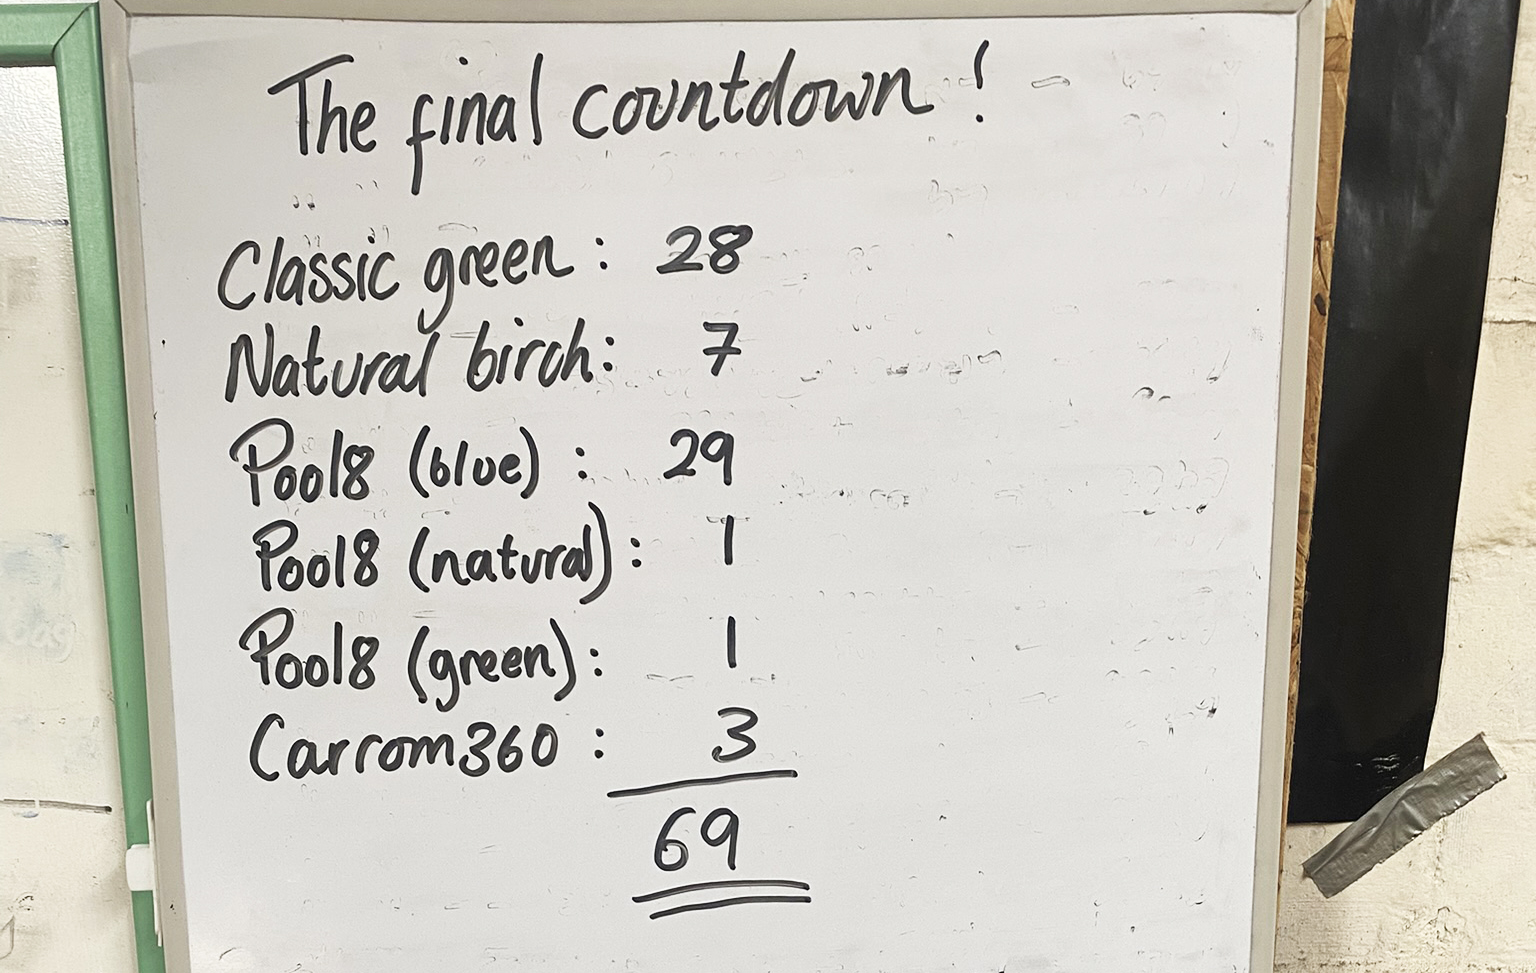 The final countdown!
Classic green: 28
Natural birch: 7
Pool8 (blue): 29
Pool8 (natural): 1
Pool8 (green): 1
Carrom360: 3
69